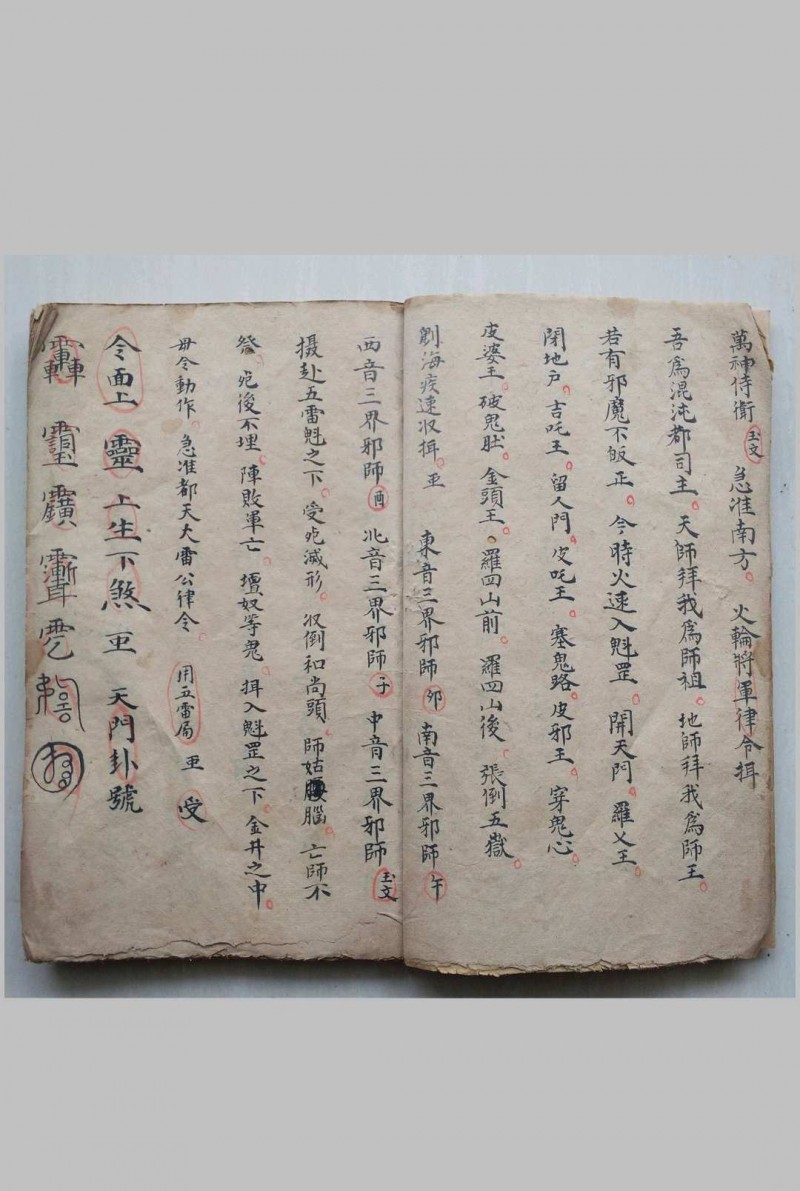 萬神侍衛 玉文 急准南方。火輪將軍律令揖
吾爲混沌都司主。天師拜我爲師祖。地師拜我爲師王。
若有邪魔不皈正。今時火速入魁罡。開天門。羅乂王。
閉地户。吉吒王。留人門。皮吒王。塞鬼路。皮邪王。穿鬼心。
皮婆王。破鬼肚。金頭王。羅四山前。羅四山後。張倒五嶽。
劊海疾速収揖。亚 東音三界邪師 卯 南音三界邪師 午
西音三界邪師 酉 北音三界邪師 子 中音三界邪師 玉文
摄赴五雷魁之下。受死滅形。収倒和尚頭。師姑腦。亡師不
葬。死後不埋。陣敗軍亡。壇奴等鬼。揖入魁罡之下。金井之中。
毋令動作。急准都天大雷公律令。用五雷局 亚 受
令面上 靈 上生下煞 亚 天門卦號